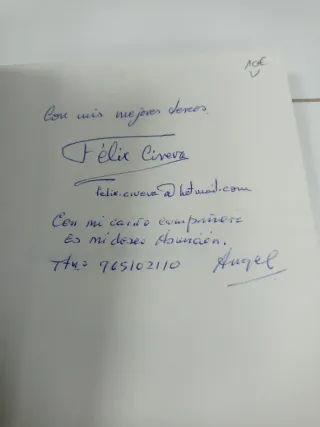 10€
Con mis mejores deseos.
Félix Civera
felix.civera@hotmail.com
Con mi cariño compañera
es mi deseo Asunción.
965102110
Angel